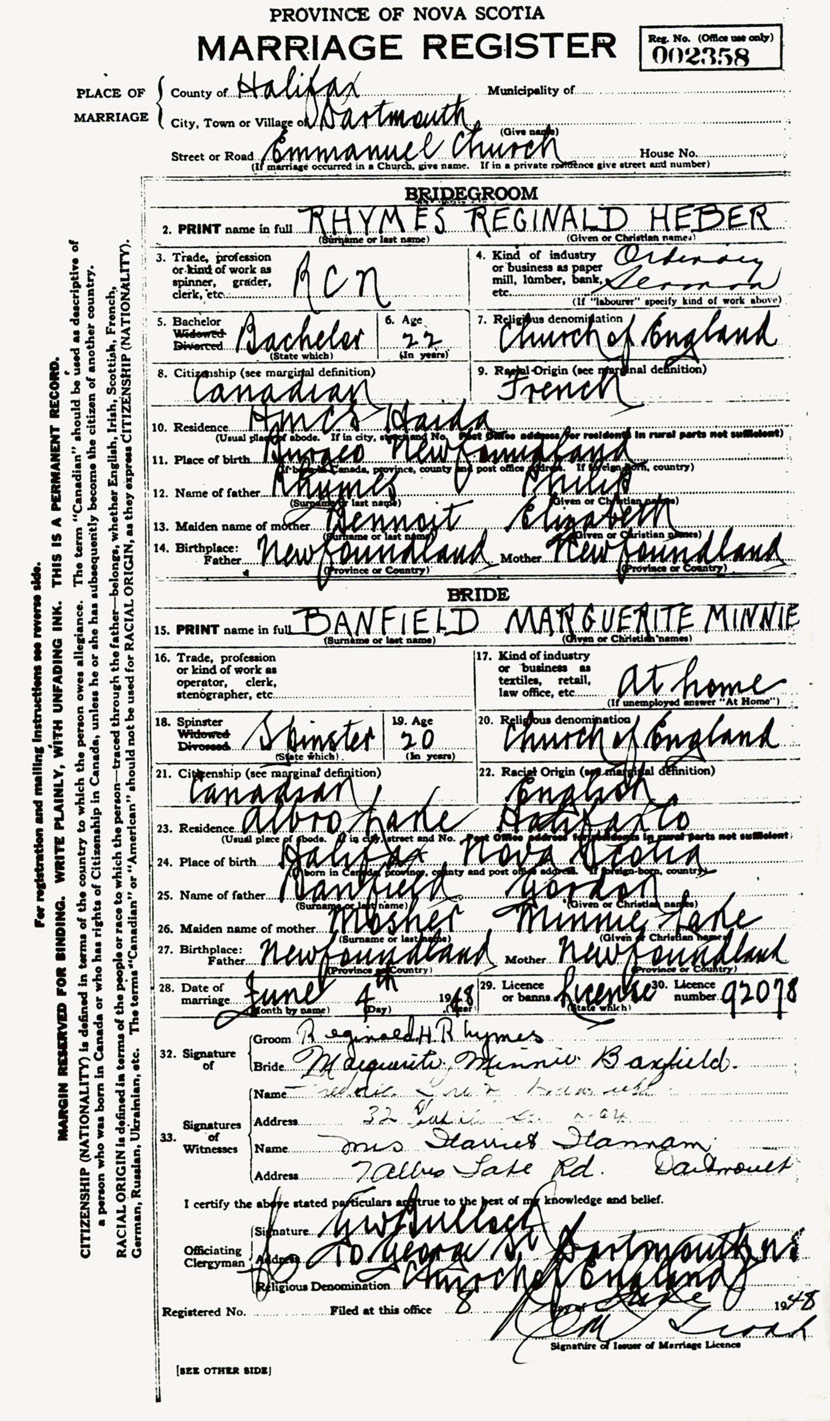 PROVINCE OF NOVA SCOTIA
MARRIAGE REGISTER
Reg. No. (Office use only)
002358
PLACE OF MARRIAGE
County of Halifax Municipality of
City, Town or Village of Dartmouth
(Give name)
Street or Road Emmanuel Church House No.
(If marriage occurred in a Church, give name. If in a private residence give street and number)
BRIDEGROOM
2. PRINT name in full RHYMES REGINALD HEBER
(Surname or last name) (Given or Christian names)
3. Trade, profession or kind of work as spinner, grader, clerk, etc. RCN
4. Kind of industry or business as paper mill, lumber, bank, etc. Ordinary Seaman
(If "labourer" specify kind of work above)
5. Bachelor Widowed Divorced Bachelor
(State which)
6. Age 22
(In years)
7. Religious denomination Church of England
8. Citizenship (see marginal definition) Canadian
9. Racial Origin (see marginal definition) French
10. Residence HMCS Haida
(Usual place of abode. If in city, street and No. Post Office address for residents in rural parts not sufficient)
11. Place of birth Burgeo Newfoundland
(If born in Canada, province, county and post office address. If foreign-born, country)
12. Name of father Rhymes Philip
(Surname or last name) (Given or Christian names)
13. Maiden name of mother Bennoit Elizabeth
(Surname or last name) (Given or Christian names)
14. Birthplace: Father Newfoundland Mother Newfoundland
(Province or Country) (Province or Country)
BRIDE
15. PRINT name in full BANFIELD MARGUERITE MINNIE
(Surname or last name) (Given or Christian names)
16. Trade, profession or kind of work as operator, clerk, stenographer, etc.
17. Kind of industry or business as textiles, retail, law office, etc. At home
(If unemployed answer "At Home")
18. Spinster Widowed Divorced Spinster
(State which)
19. Age 20
(In years)
20. Religious denomination Church of England
21. Citizenship (see marginal definition) Canadian
22. Racial Origin (see marginal definition) English
23. Residence Albro Lake Halifax Co
(Usual place of abode. If in city, street and No. Post Office address for residents in rural parts not sufficient)
24. Place of birth Halifax Nova Scotia
(If born in Canada, province, county and post office address. If foreign-born, country)
25. Name of father Banfield Gordon
(Surname or last name) (Given or Christian names)
26. Maiden name of mother Mosher Minnie Jane
(Surname or last name) (Given or Christian names)
27. Birthplace: Father Newfoundland Mother Newfoundland
(Province or Country) (Province or Country)
28. Date of marriage June 4th 1948
(Month by name) (Day) (Year)
29. Licence or banns License
(State which)
30. Licence number 92078
32. Signature of
Groom Reginald H Rhymes
Bride Marguerite Minnie Banfield.
33. Signatures of Witnesses
Name
Address 32
Name Mrs Harriet Hannam
Address 7 Albro Lake Rd. Dartmouth
I certify the above stated particulars are true to the best of my knowledge and belief.
Officiating Clergyman
Signature
Address George St Dartmouth NS
Religious Denomination Church of England
Registered No. Filed at this office 8 June 1948
Signature of Issuer of Marriage Licence
[SEE OTHER SIDE]
For registration and mailing instructions see reverse side.
MARGIN RESERVED FOR BINDING. WRITE PLAINLY, WITH UNFADING INK. THIS IS A PERMANENT RECORD.
CITIZENSHIP (NATIONALITY) is defined in terms of the country to which the person owes allegiance. The term "Canadian" should be used as descriptive of
a person who was born in Canada or who has rights of Citizenship in Canada, unless he or she has subsequently become the citizen of another country.
RACIAL ORIGIN is defined in terms of the people or race to which the person—traced through the father—belongs, whether English, Irish, Scottish, French,
German, Russian, Ukrainian, etc. The terms "Canadian" or "American" should not be used for RACIAL ORIGIN, as they express CITIZENSHIP (NATIONALITY).